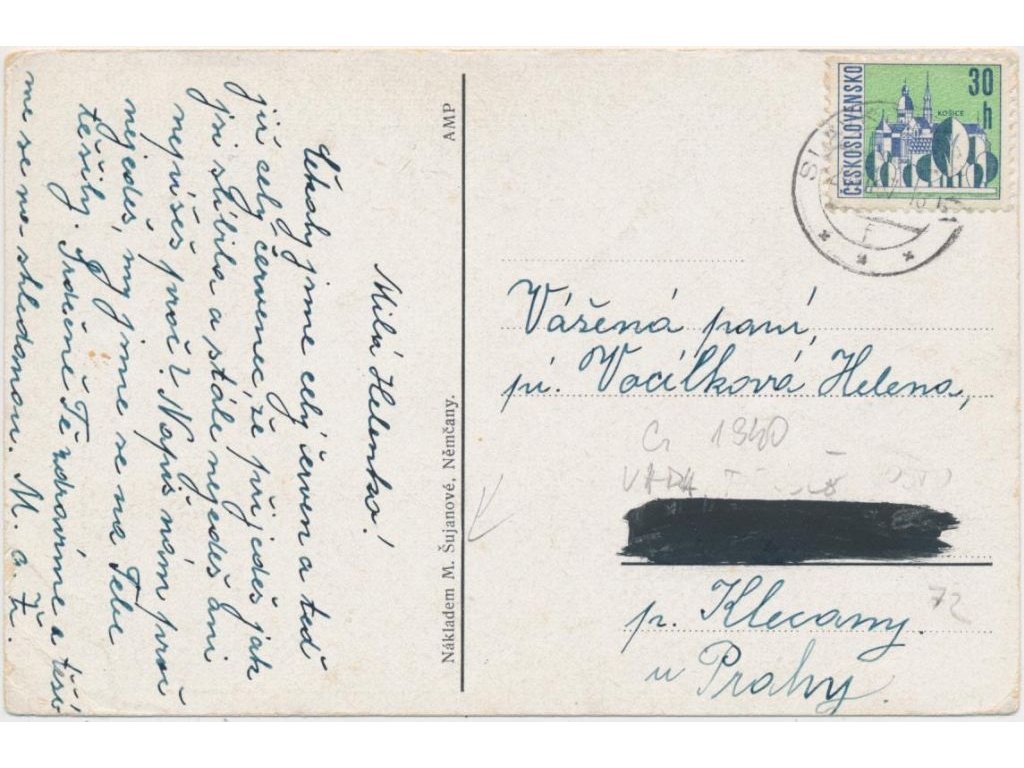 Milá Helenko!
Čekaly jsme celý červen a teď
již celý červenec, že přijedeš jak
jsi slíbila a stále nejedeš ani
nepíšeš proč? Napiš nám proč
nejedeš, my jsme se na Tebe
těšily. Srdečně Tě zdravíme a těší
me se na shledanou. M. a. Ž.
Nákladem M. Šujanové, Němčany.
AMP
ČESKOSLOVENSKO
30
h
KOŠICE
Vážená paní,
pí. Vocílková Helena,
1940
VADA
p. Klecany
u Prahy.
72